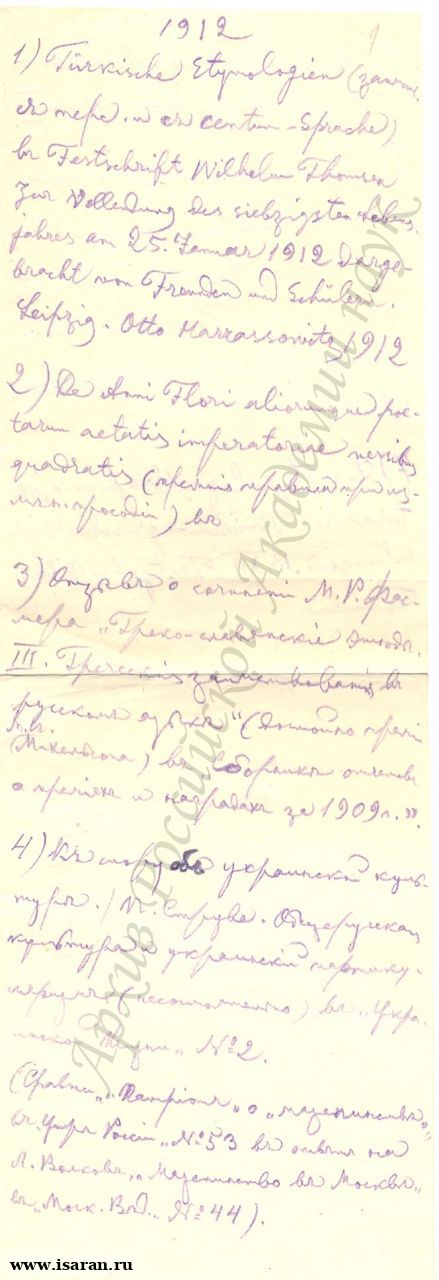 1912
1) Türkische Etymologien (заимств.
ст перс. и ст centum-Sprache)
въ Festschrift Wilhelm Thomsen
zur Vollendung des siebzigsten Lebens
jahres am 25. Januar 1912 darge-
bracht von Freunden und Schülern.
Leipzig. Otto Harrassowitz 1912
2) De Anni Flori aliorumque poe-
tarum aetatis imperatoriae versibus
quadratis (правила при
просодіи) въ
3) Отзывъ о сочиненіи М. Р. Фас-
мера „Греко-славянскіе этюды.
III. Греческія заимствованія въ
русскомъ языкѣ“ (достойно преміи
Михельсона) въ „Сборникѣ отчетовъ
о преміяхъ и наградахъ за 1909 г.“
4) Къ спору объ украинской куль-
турѣ. П. Струве. Общерусская
культура и украинскій партику-
ляризмъ (несогласно) въ „Укра-
инской Жизни“ №2.
(Сравни „Патріотъ“ о „мазепинствѣ“
въ „Утрѣ Россіи“ №53 въ отвѣтъ на
Л. Волковъ, „Мазепинство въ Москвѣ“
въ „Моск. Вѣд.“ №44).
Архив Российской Академии наук
www.isaran.ru